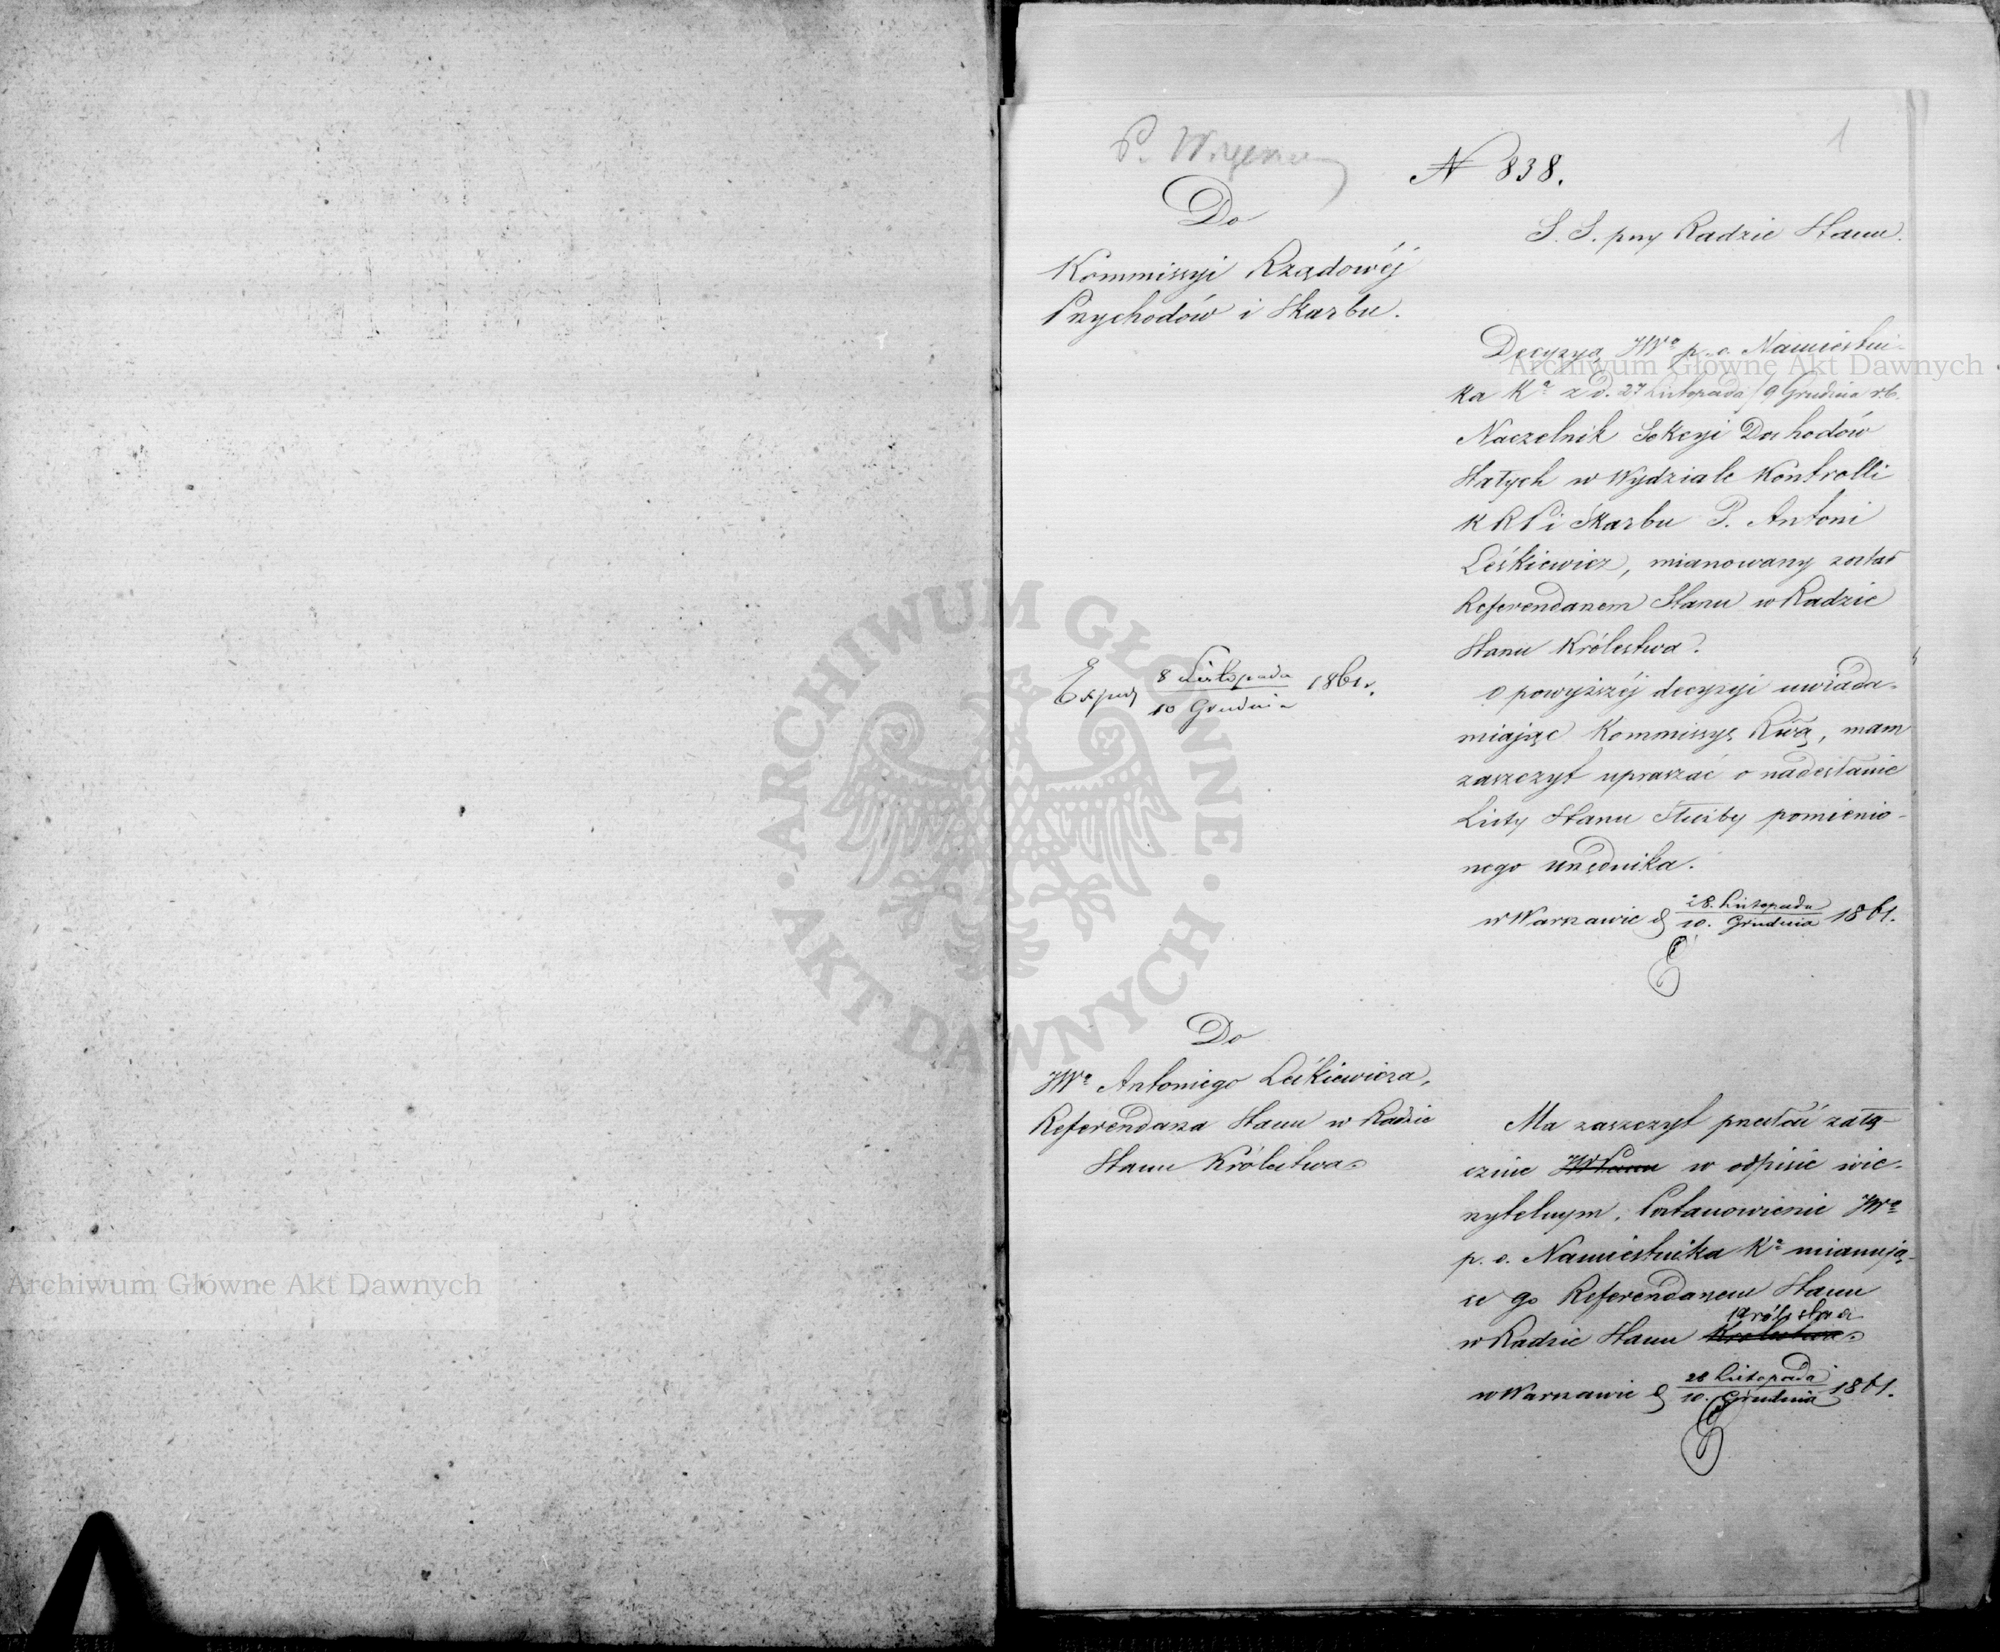 1
N 838.
Do
Kommissyi Rządowéj
Przychodów i Skarbu.
S. S. przy Radzie Stanu.
Decyzyą JWo p. o. Namiestni-
ka Ka z d. 27 Listopada / 9 Grudnia r.b.
Naczelnik Sekcyi Dochodów
Stałych w Wydziale Kontrolli
K R P i Skarbu P. Antoni
Leśkiewicz, mianowany został
Referendarzem Stanu w Radzie
Stanu Królestwa.
O powyższéj decyzyi uwiada-
miając Kommissyę Rwą, mam
zaszczyt upraszać o nadesłanie
Listy Stanu Służby pomienio-
nego urzędnika.
w Warszawie d 28. Listopada / 10. Grudnia 1861.
Exped 8 Listopada / 10 Grudnia 1861 r.
Do
JWo Antoniego Leśkiewicza,
Referendarza Stanu w Radzie
Stanu Królestwa.
Ma zaszczyt przesłać załą-
cznie JWPanu w odpisie wie-
rzytelnym, Postanowienie JWo
p. o. Namiestnika Ka mianują-
ce go Referendarzem Stanu
Królestwa
w Radzie Stanu Królestwa.
w Warszawie d 28 Listopada / 10. Grudnia 1861.
Archiwum Główne Akt Dawnych
Archiwum Główne Akt Dawnych
ARCHIWUM GŁÓWNE · AKT DAWNYCH ·